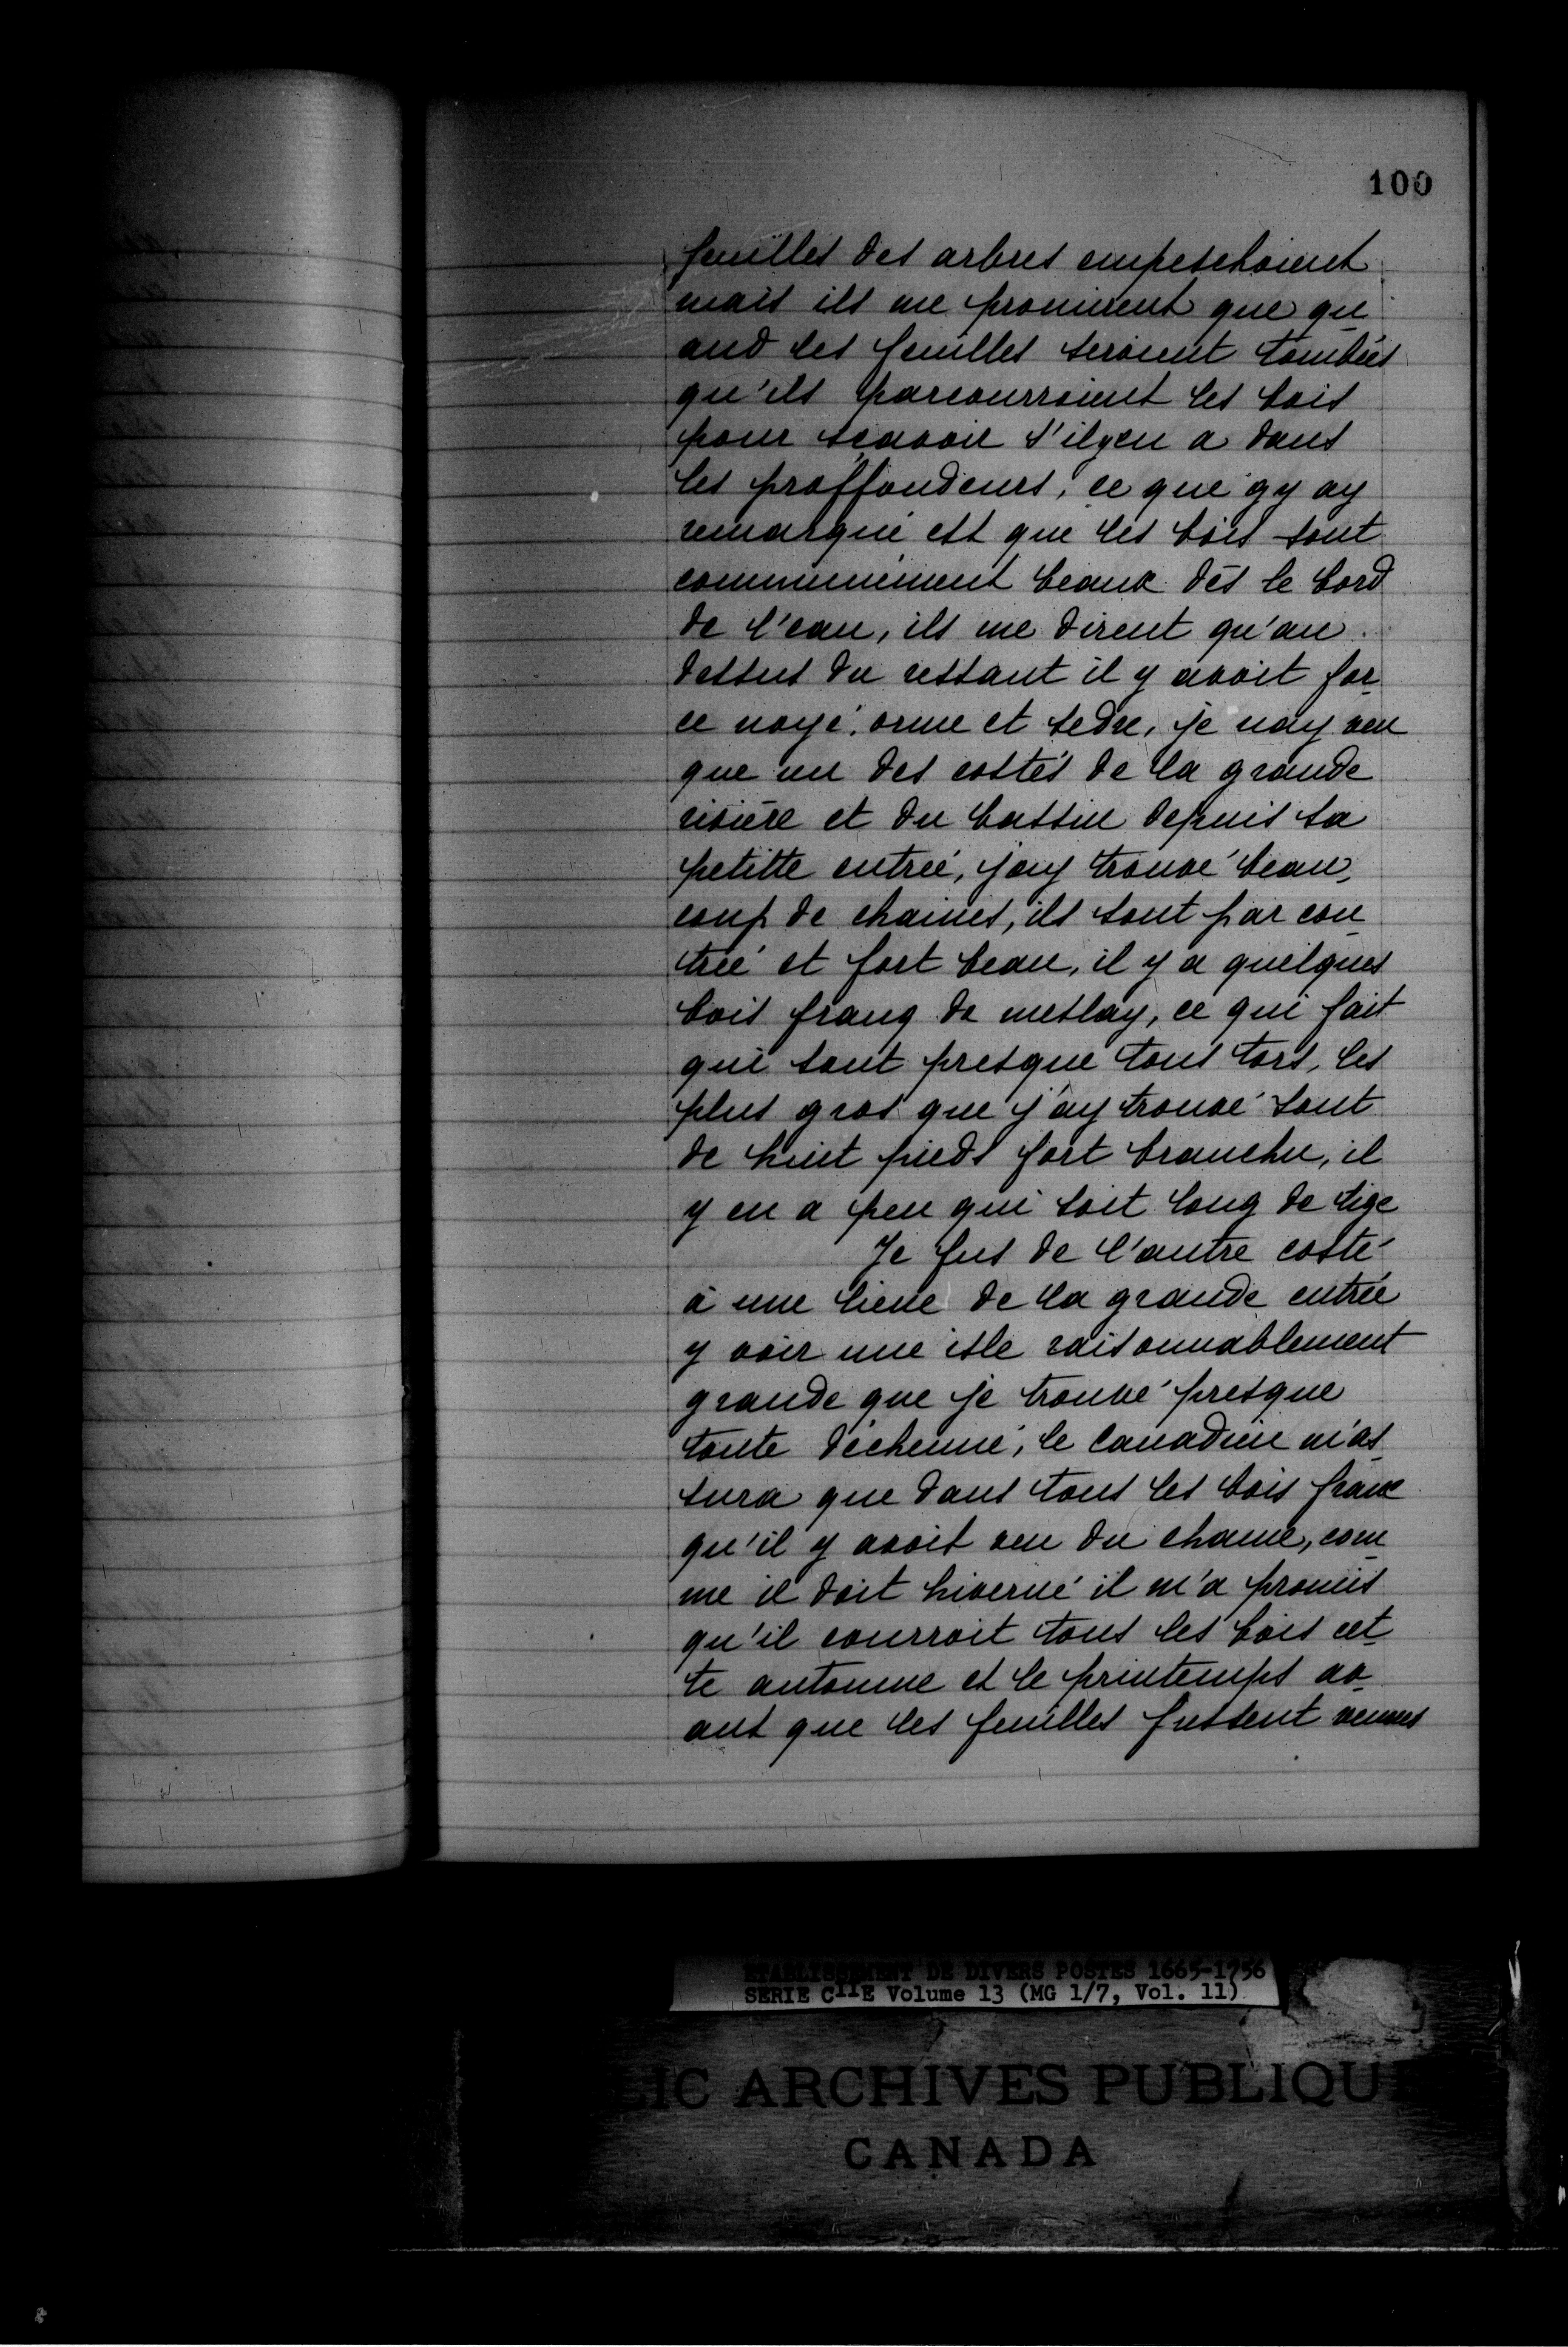 100
feuilles des arbres empeschoient
mais ils me promirent que qu
and les feuilles seroient tombées
qu'ils parcourroient les bois
pour sçavoir s'ilyen a dans
les proffondeurs, ce que gy ay
remarqué est que les bois sont
communément beaux dès le bord
de l'eau, ils me dirent qu'au
dessus du ressaut il y avoit for
ce noyé, orme et sedre, je nay veu
que un des costés de la grande
rivière et du bassin depuis sa
petitte entrée, jay trouvé beau
coup de chaines, ils sont par con
trée et fort beau, il y a quelques
bois franq de meslay, ce qui fait
qui sont presque tous tors, les
plus gros que j'ay trouvé sont
de huit pieds fort branchu, il
y en a peu qui soit long de tige
Je fus de l'autre costé
à une lieue de la grande entrée
y voir une isle raisonnablement
grande que je trouvé presque
toute déchenne, le Canadien m'as
sura que dans tous les bois franx
qu'il y avoit veu du chaine, com
me il doit hiverné il m'a promis
qu'il courroit tous les bois cet
te automne et le printemps av
ant que les feuilles fussent venues
ETABLISSEMENT DE DIVERS POSTES 1665-1756
SERIE C11E Volume 13 (MG 1/7, Vol. 11)
LIC ARCHIVES PUBLIQU
CANADA